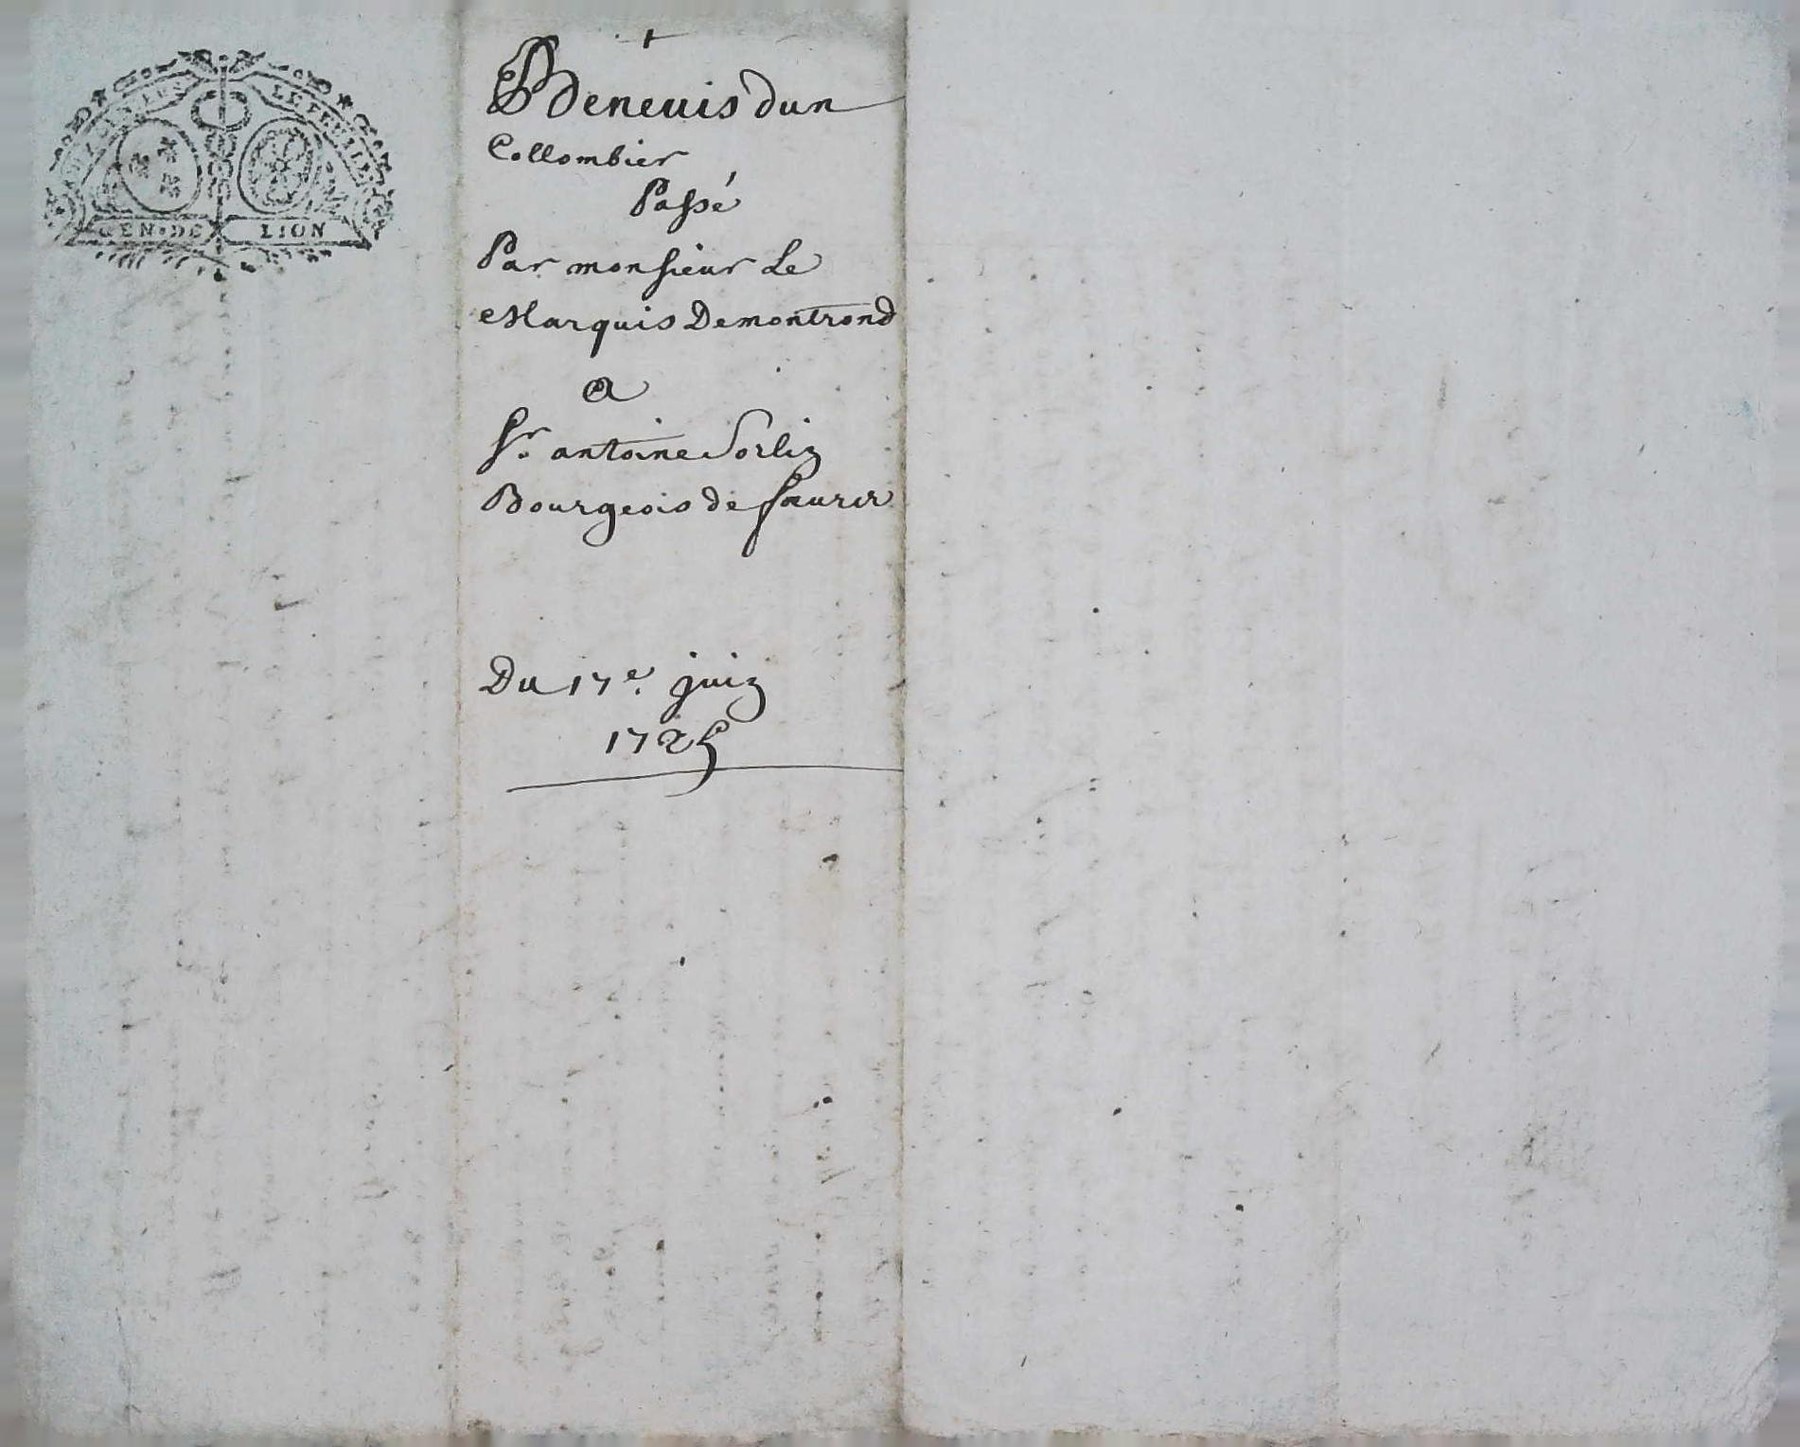 GEN·DE LION
Benevis dun
Collombier
Passé
Par monsieur Le
Marquis Demontrond
a
Sr. antoine Sorlin
Bourgeois de
Du 17e. juin
1725